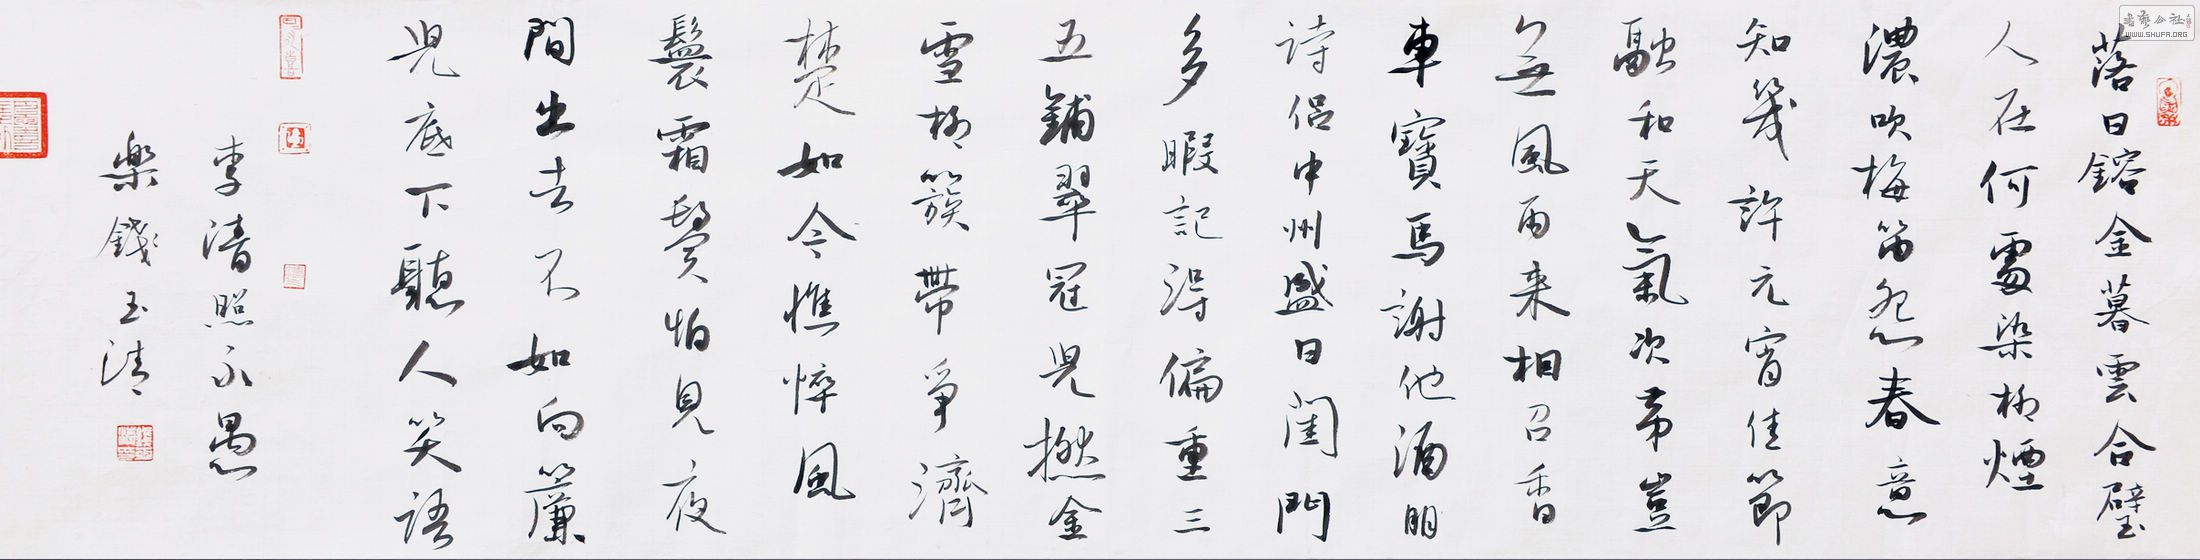 落日鎔金暮雲合璧
人在何處染柳煙
濃吹梅笛怨春意
知幾許元宵佳節
融和天氣次第豈
無風雨来相召香
車寶馬謝他酒朋
詩侶中州盛日閨門
多暇記得偏重三
五鋪翠冠兒撚金
雪柳簇帶爭濟
楚如今憔悴風
鬟霜鬢怕見夜
間出去不如向簾
兒底下聽人笑語
李清照永愚
楽錢玉清
書藝公社
WWW.SHUFA.ORG